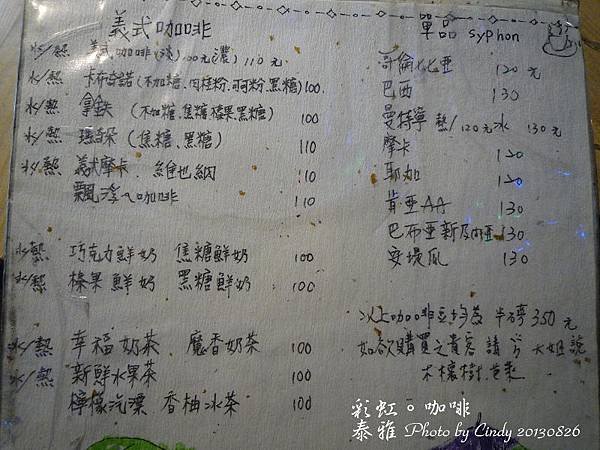 義式咖啡
冰/熱 義式咖啡(淡)100元(濃)110元
冰/熱 卡布奇諾(不加糖、肉桂粉、可可粉、黑糖)100
冰/熱 拿鉄(不加糖、焦糖、榛果、黑糖) 100
冰/熱 瑪奇朵(焦糖、黑糖) 110
冰/熱 義式摩卡. 維也納 110
飄浮咖啡 110
冰/熱 巧克力鮮奶 焦糖鮮奶 100
冰/熱 榛果鮮奶 黑糖鮮奶 100
冰/熱 幸福奶茶 魔香奶茶 100
冰/熱 新鮮水果茶 100
檸檬汽漂 香柚冰茶 100
單品 Syphon
哥倫比亞 120元
巴西 130
曼特寧 熱/120元 冰 130元
摩卡 120
耶加 120
肯亞AA 130
巴布亞新几內亞 130
安堤瓜 130
以上咖啡豆均為 半磅350元
如欲購買之貴客 請
彩虹。咖啡
泰雅 Photo by Cindy 20130826